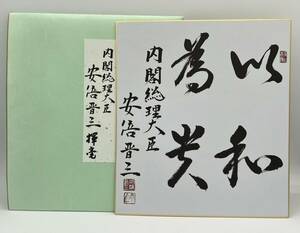 以和
為貴
内閣総理大臣
安倍晋三
内閣総理大臣
安倍晋三 揮毫